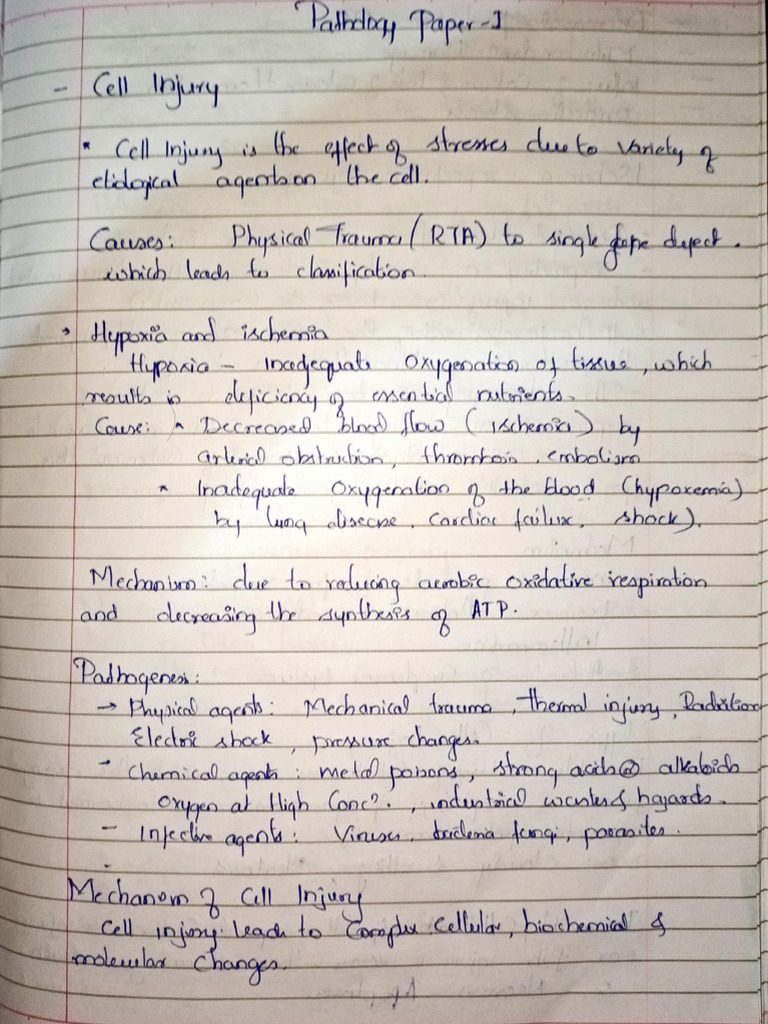 Pathology Paper-I
- Cell Injury
* Cell Injury is the effect of stresses due to variety of
etiological agents on the cell.
Causes: Physical Trauma (RTA) to single gene defect.
which leads to classification.
Hypoxia and ischemia
Hypoxia - Inadequate oxygenation of tissue, which
results in deficiency of essential nutrients.
Cause: * Decreased blood flow (ischemia) by
arterial obstruction, thrombosis, embolism
* Inadequate oxygenation of the blood (hypoxemia)
by lung disease, cardiac failure, shock).
Mechanism: due to reducing aerobic oxidative respiration
and decreasing the synthesis of ATP.
Pathogenesis:
→ Physical agents: Mechanical trauma, Thermal injury, Radiation
Electric shock, pressure changes.
- Chemical agents: metal poisons, strong acids @ alkaloids
Oxygen at High Conc., industrial wastes & hazards.
- Infective agents: Viruses, bacteria fungi, parasites.
Mechanism of Cell Injury
Cell injury leads to Complex Cellular, biochemical &
molecular changes.